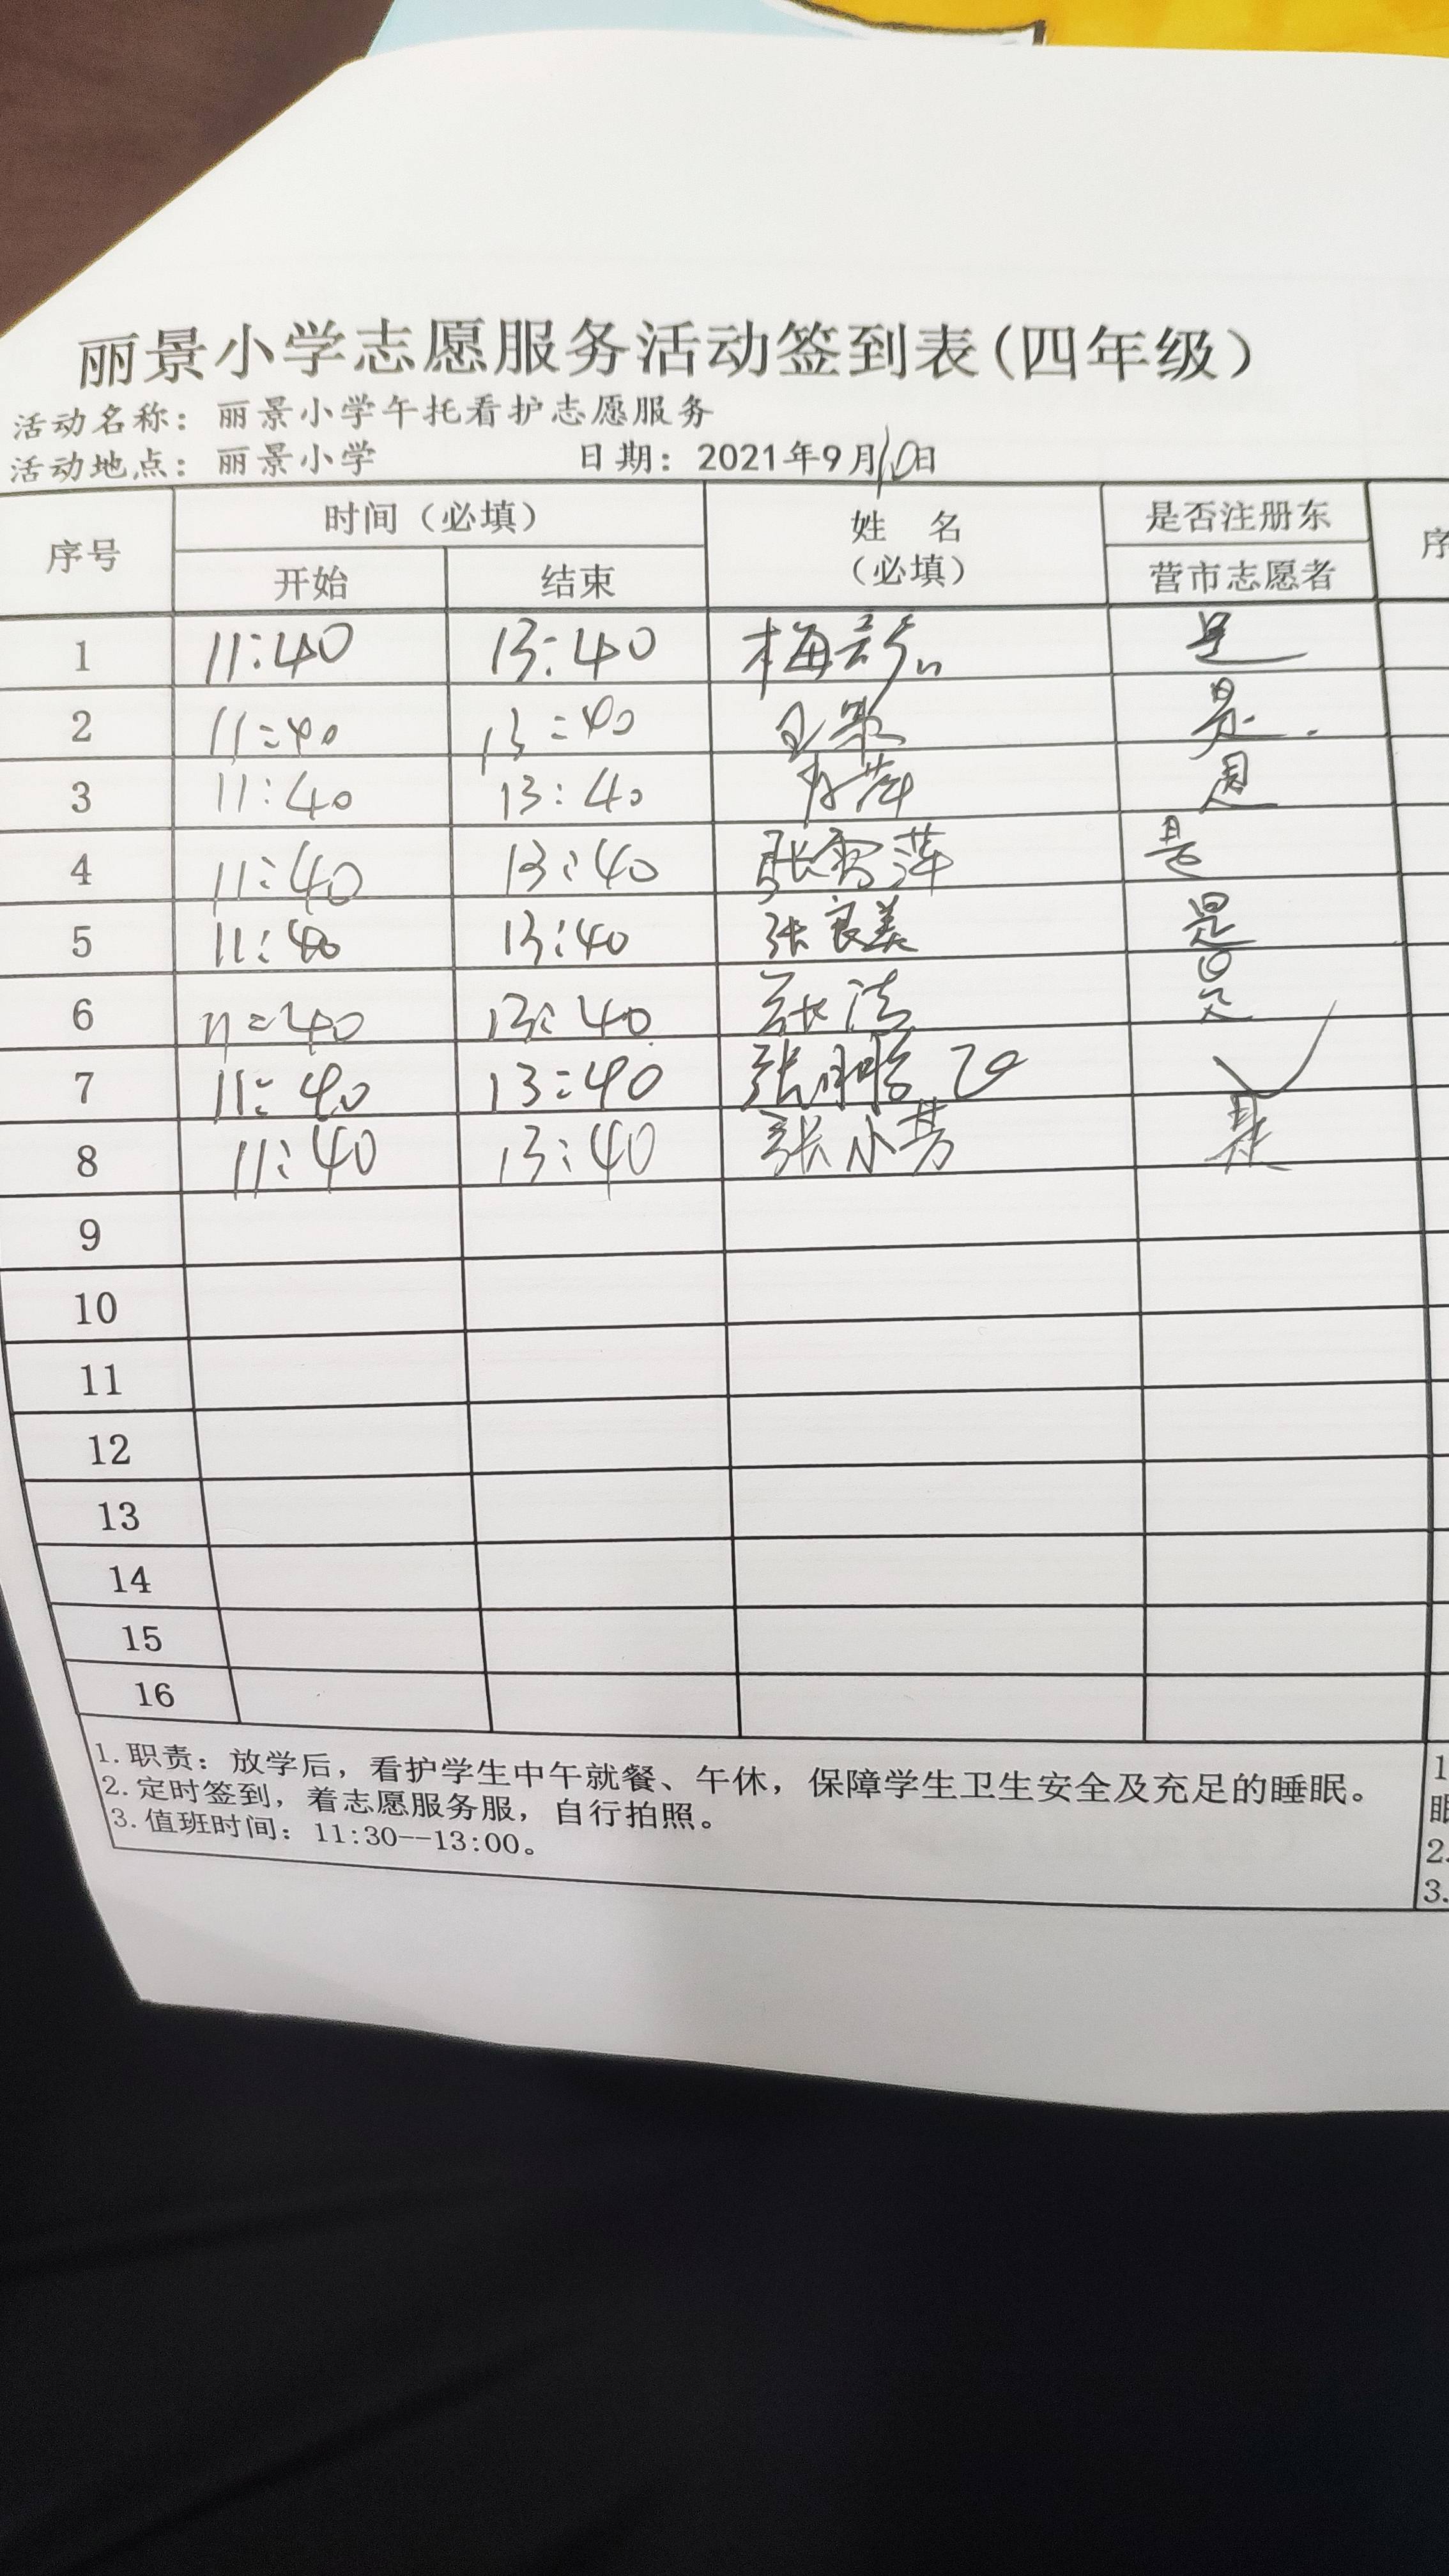 丽景小学志愿服务活动签到表(四年级)
活动名称：丽景小学午托看护志愿服务
活动地点：丽景小学 日期：2021年9月10日
序号 时间（必填） 姓 名 是否注册东 序
开始 结束 （必填） 营市志愿者
1 11:40 13:40 梅 是
2 11:40 13:40 是.
3 11:40 13:40 萍
4 11:40 13:40 张雪萍 是
5 11:40 13:40 张良美 是
6 11:40 13:40 张洁 是
7 11:40 13:40 张 ✓
8 11:40 13:40 张小芳 是
9
10
11
12
13
14
15
16
1.职责：放学后，看护学生中午就餐、午休，保障学生卫生安全及充足的睡眠。
2.定时签到，着志愿服务服，自行拍照。
3.值班时间：11:30--13:00。
1
眠
2.
3.